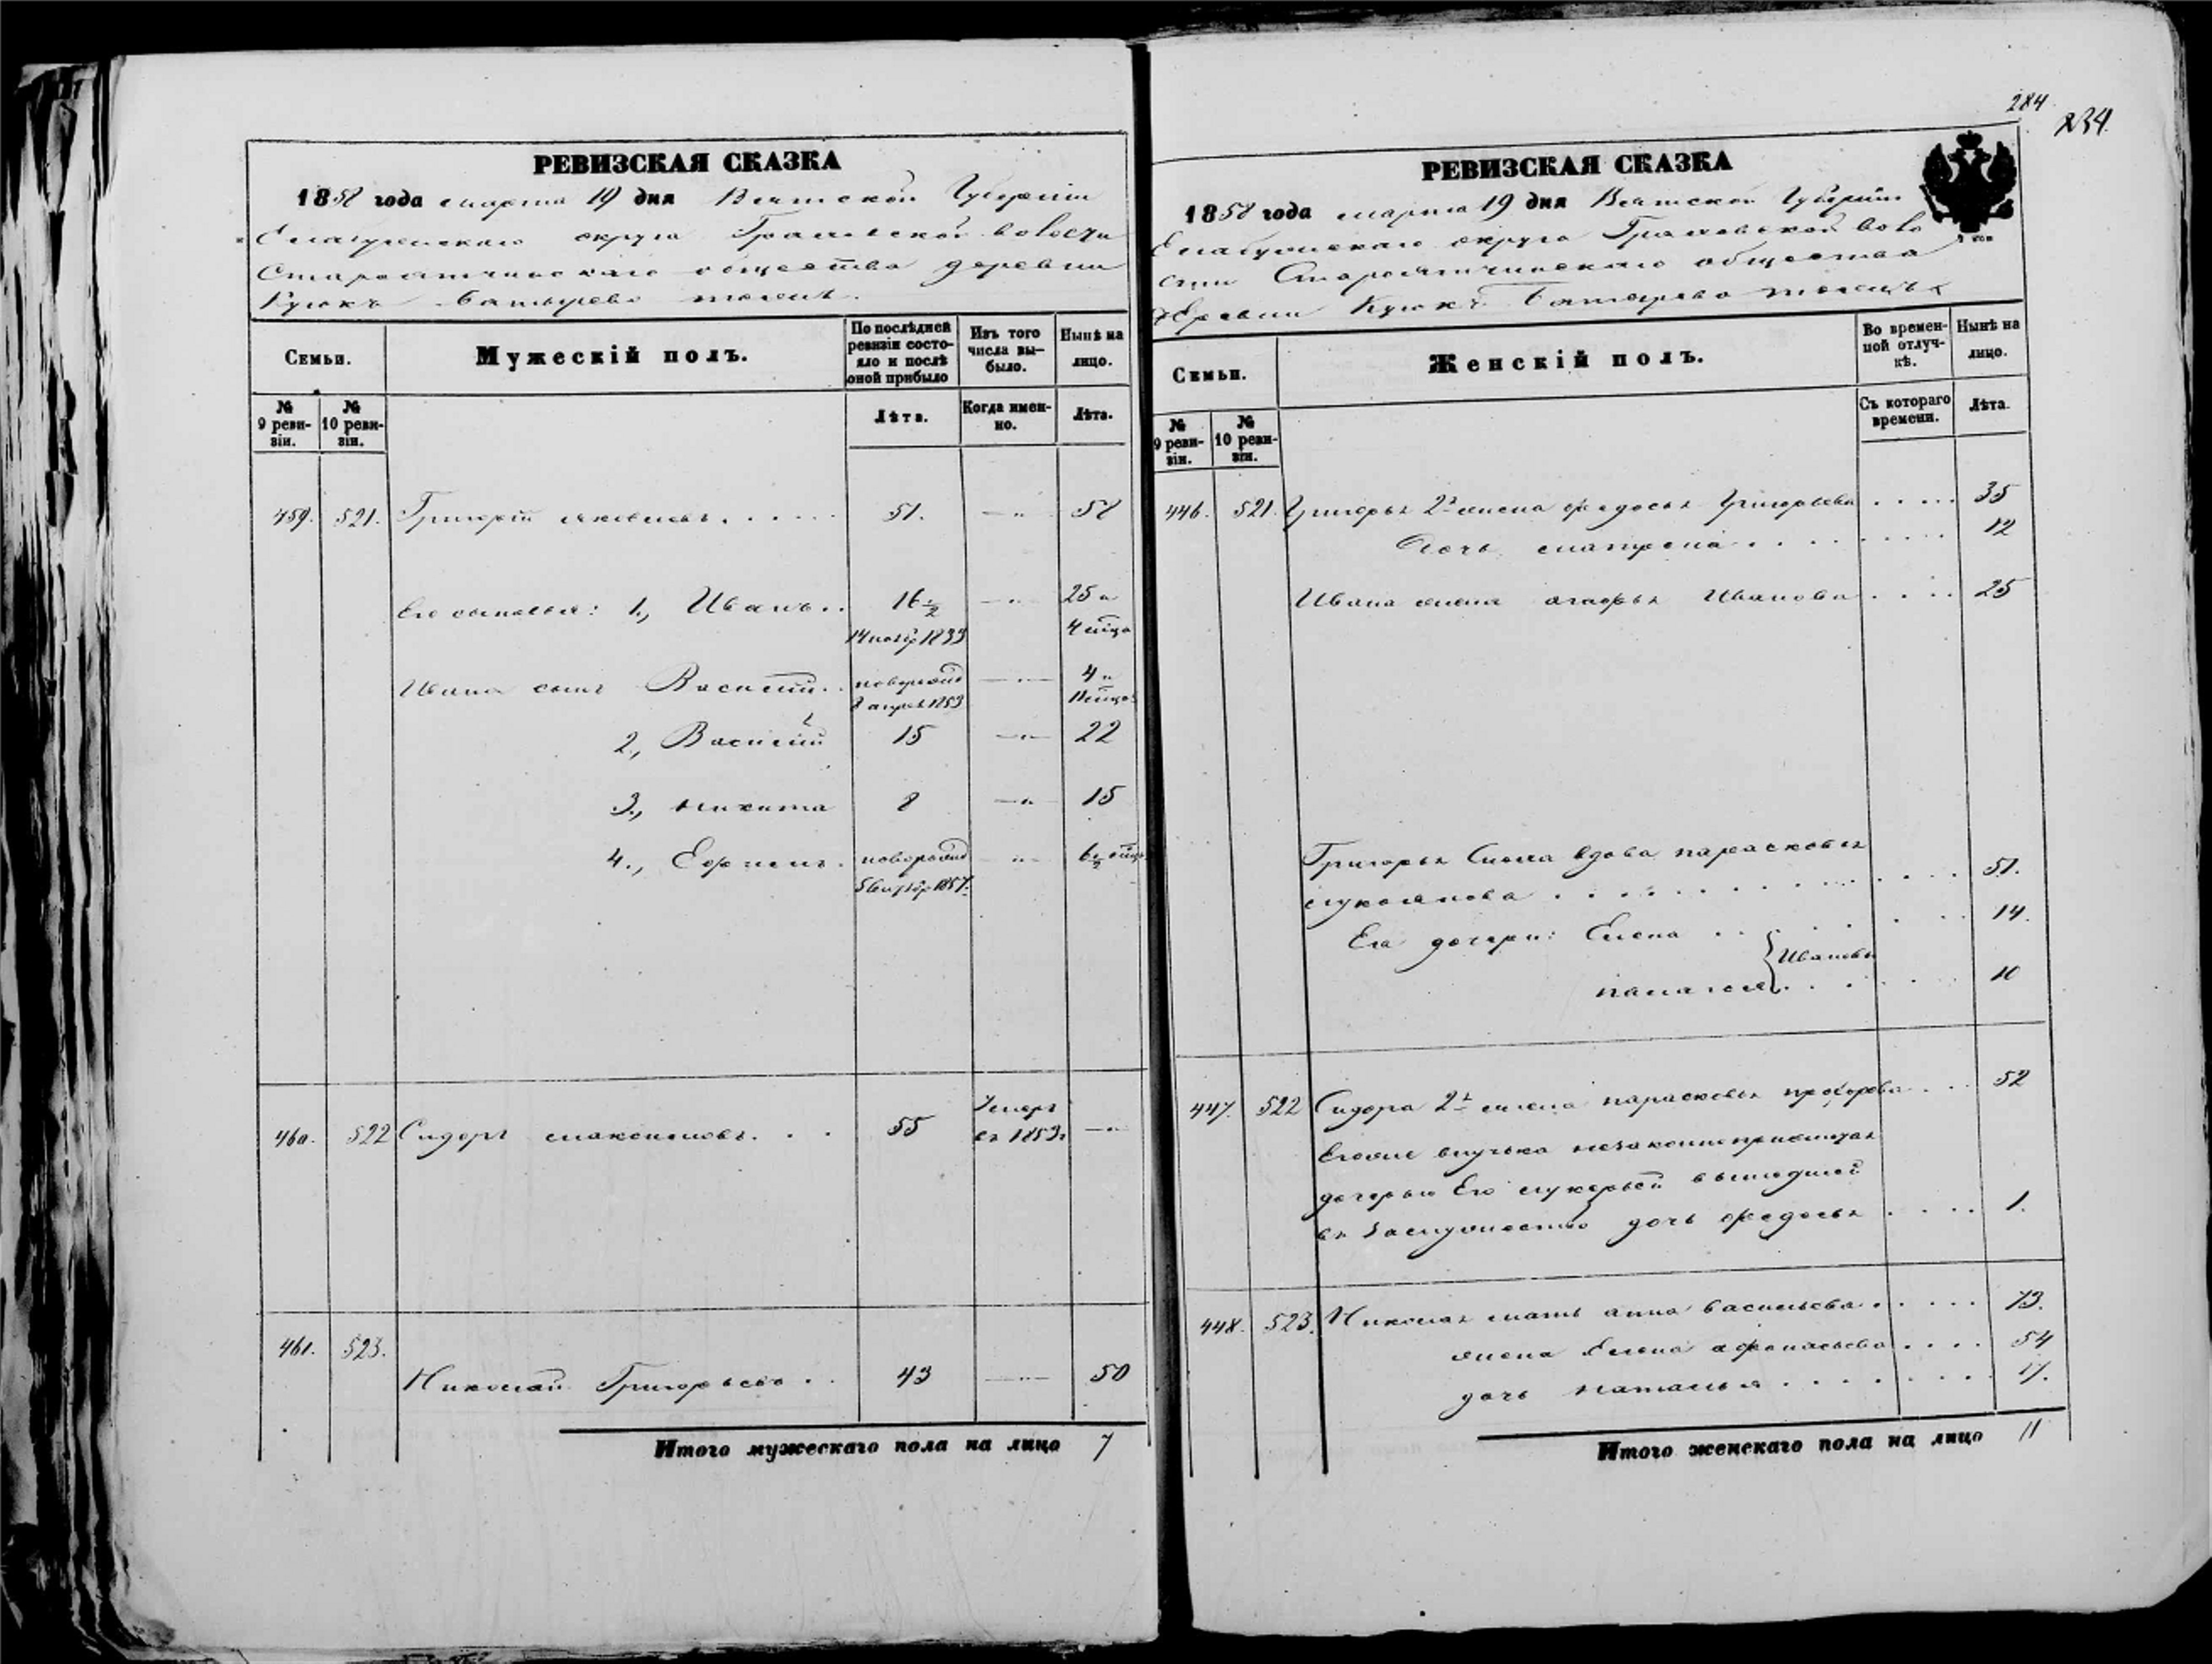 РЕВИЗСКАЯ СКАЗКА
1858 года марта 19 дня Вятской Губернiи
Елабужскаго округа Граховской волости
общества деревни
Куюкъ
Семьи.
Мужескiй полъ.
По послѣдней ревизiи состояло и послѣ оной прибыло
Изъ того числа выбыло.
Нынѣ на лицо.
№ 9 ревизiи.
№ 10 ревизiи.
Лѣта.
Когда именно.
Лѣта.
459. 521. Григорiй Яковлевъ. . . . . 51. —"— 58
Его сыновья: 1., Иванъ. . 16 1/2 —"— 25 и
4 мѣся
Ивана сынъ Василiй. . новорожд —"— 4 и
11 мѣцов
2., Василiй 15 —"— 22
3., Никита 8 —"— 15
4., Ефимъ . новорожд " 6 1/2 мѣц
460. 522 Сидоръ Максимовъ. . . 55 Умеръ
въ 1853г —"—
461. 523.
Николай Григорьевъ . . 43 —"— 50
Итого мужескаго пола на лицо 7
284
234
РЕВИЗСКАЯ СКАЗКА
1858 года марта 19 дня Вятской Губернiи
Елабужскаго округа Граховской воло
сти общества
деревни Куюкъ
Семьи.
Женскiй полъ.
Во временной отлучкѣ.
Нынѣ на лицо.
№ 9 ревизiи.
№ 10 ревизiи.
Съ котораго времени.
Лѣта.
446. 521. Григорья 2я жена Федосья Григорьева . . . . 35
Дочь Матрена . . . . . . . . 12
Ивана жена Агафья Иванова . . . . 25
Григорья вдова Парасковья
. . . . . . . . . . 51.
Ея дочери: Елена . . . . . . 14.
Ивановы
Палагея . . . . . 10
447. 522 Сидора 2я жена Парасковья Прохорова . . . 52
Его же внучька незаконноприжитая
дочерью Его Лукерьей вышедшей
въ Замужество дочь Федосья . . . . 1.
448. 523. Николая мать Анна Васильева . . . . . 73.
жена Елена Афонасьева . . . . 54
дочь Наталья . . . . . . . . 17.
Итого женскаго пола на лицо 11